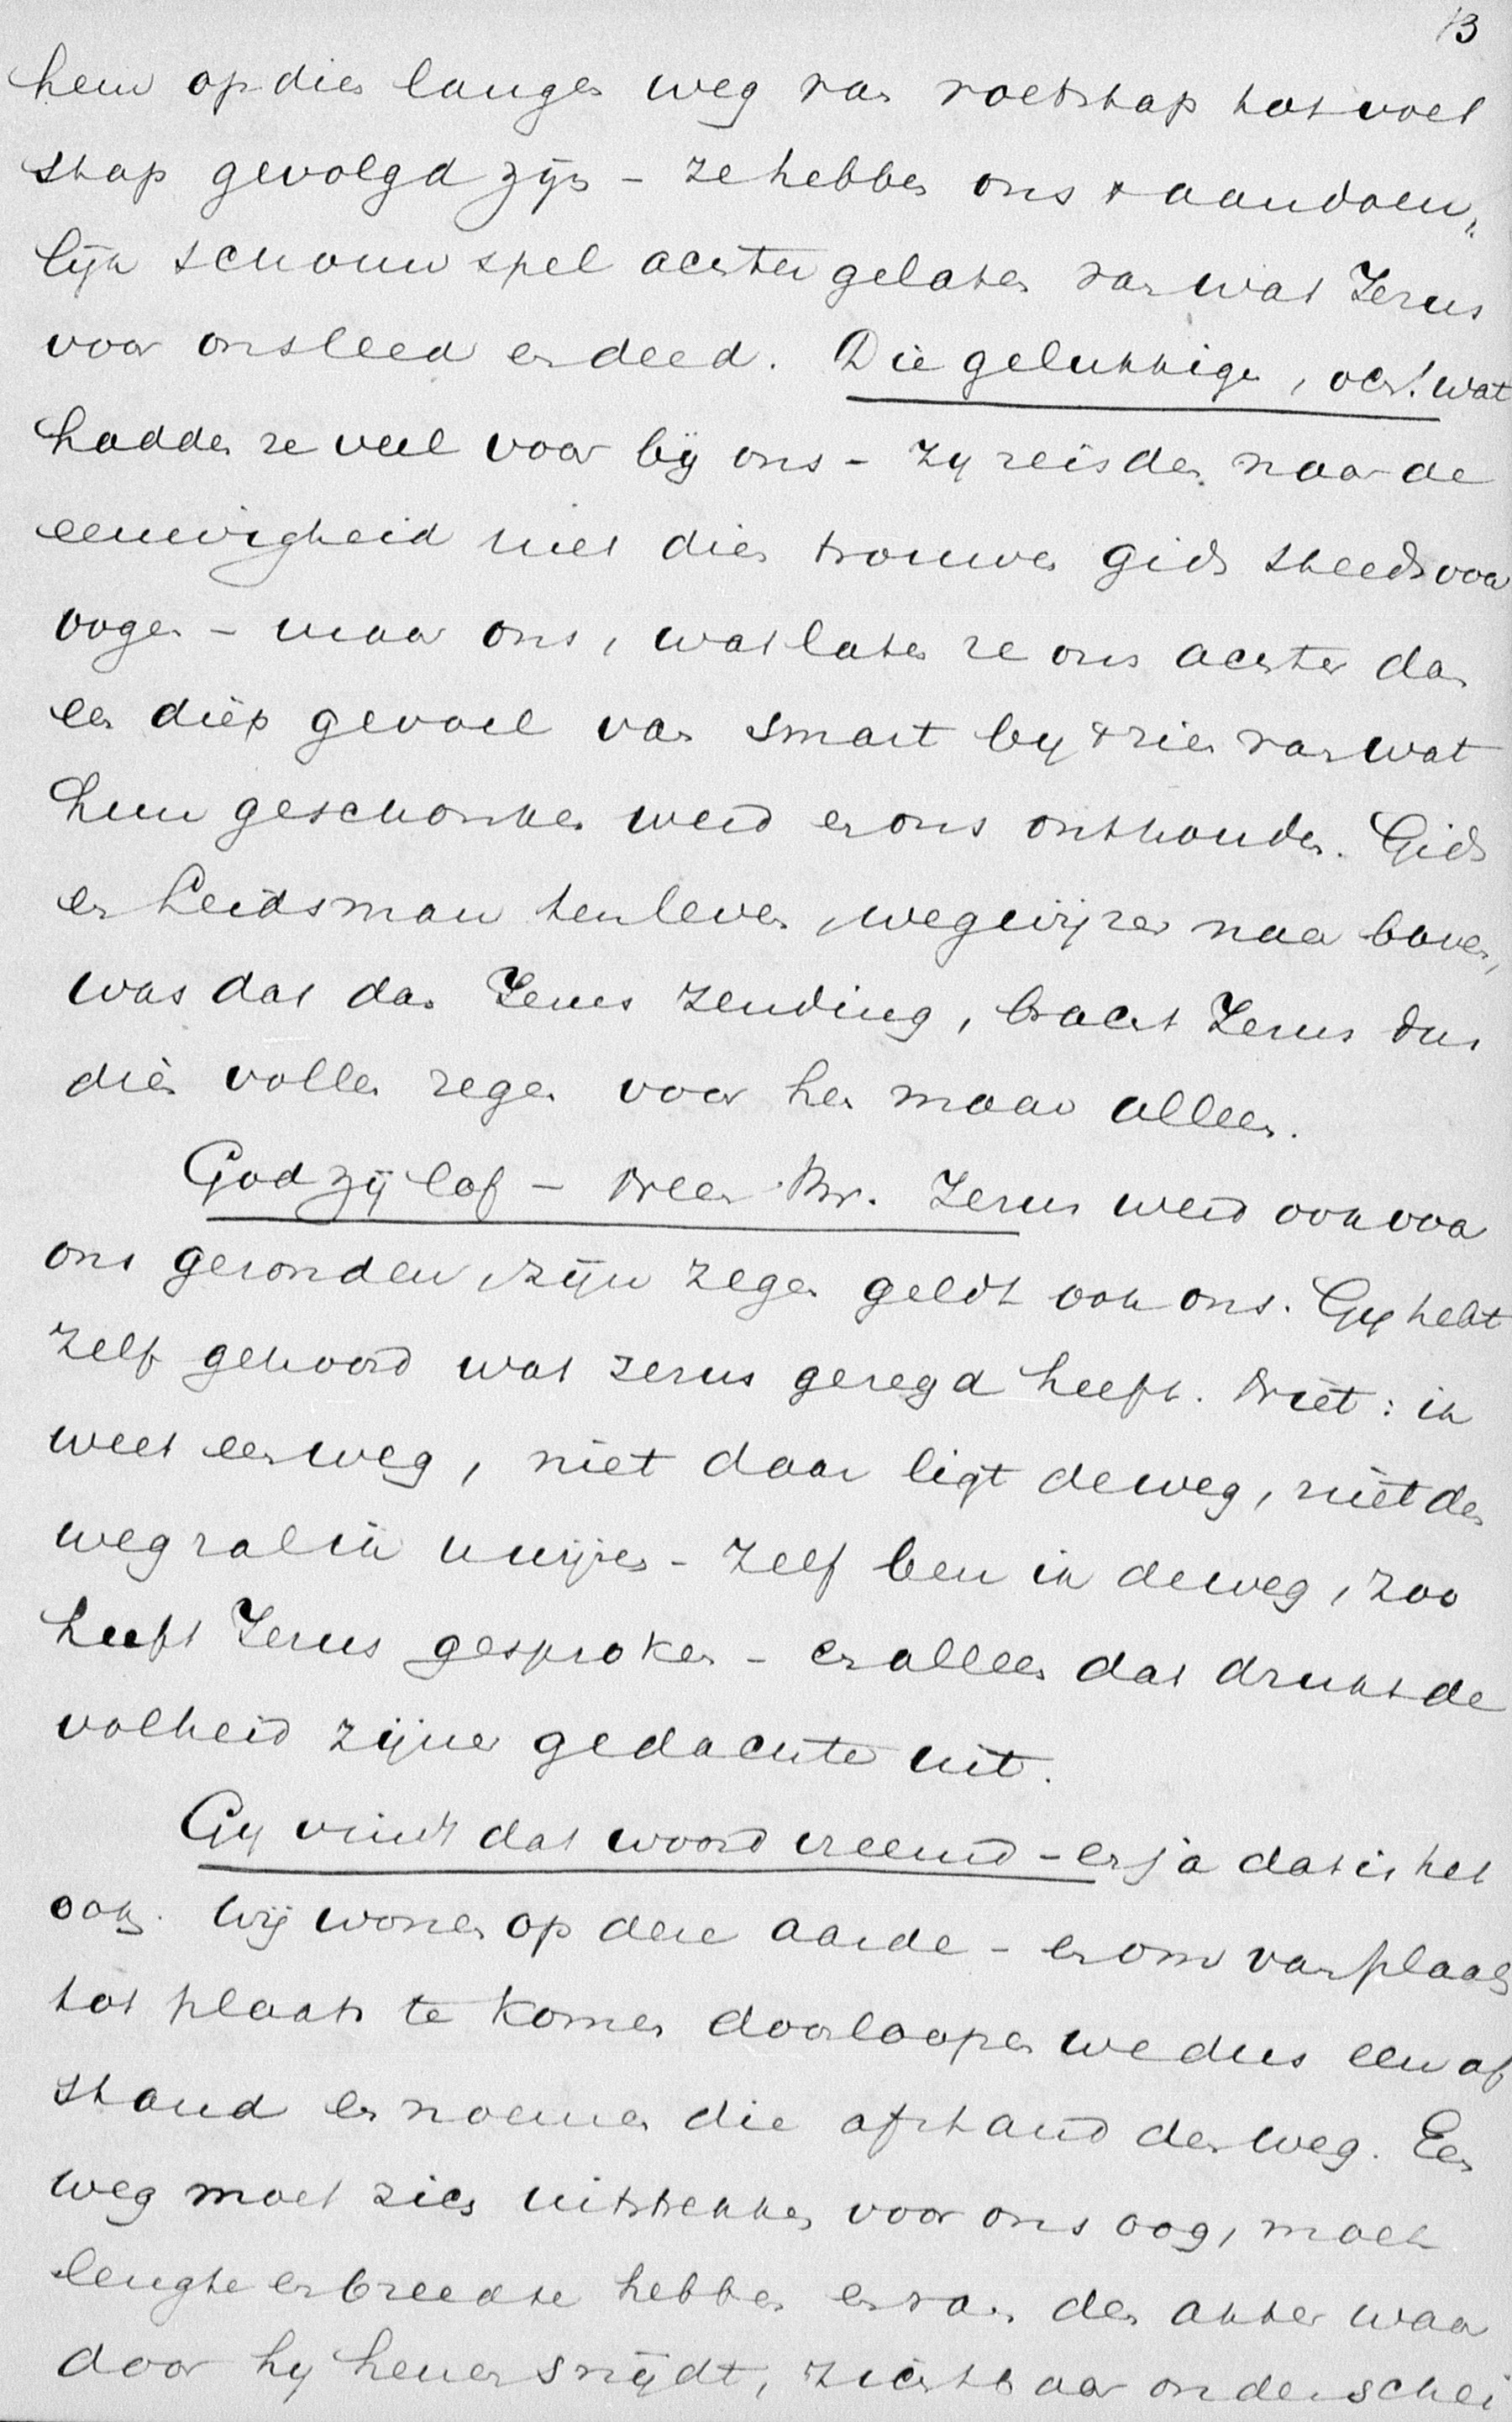 13
hem op dien langen weg van voetstap tot voet
stap gevolgd zijn – ze hebben ons 't aandoen„
lijk schouwspel achtergelaten van wat Jezus
voor ons leed en deed. Die gelukkigen, och! wat
hadden ze veel voor bij ons – zy reisden naar de
eeuwigheid met dien trouwen gids steeds voor
oogen – maar ons, wat laten ze ons achter dan
een diep gevoel van smart by 't zien van wat
hun geschonken werd en ons onthouden. Gids
en Leidsman ten leven, wegwijzer naar boven,
was dat dan Jezus zending, bracht Jezus dus
dien vollen zegen voor hen maar alleen.
God zij lof – Neen Br. Jezus werd ook voor
ons gezonden, zijn zegen geldt ook ons. Gy hebt
zelf gehoord wat Jezus gezegd heeft. Niet: ik
weet een weg, niet daar ligt de weg, niet den
weg zal ik u wijzen – zelf ben ik de weg, zoo
heeft Jezus gesproken – en alleen dat drukt de
volheid zijner gedachte uit.
Gy vindt dat woord vreemd – en ja dat is het
ook. Wij wonen op deze aarde – en om van plaats
tot plaats te komen doorloopen we dus een af
stand en noemen die afstand den weg. Een
weg moet zich uitstrekken voor ons oog, moet
lengte en breedte hebben en van den akker waar
door hy henensnijdt, zichtbaar onderschei